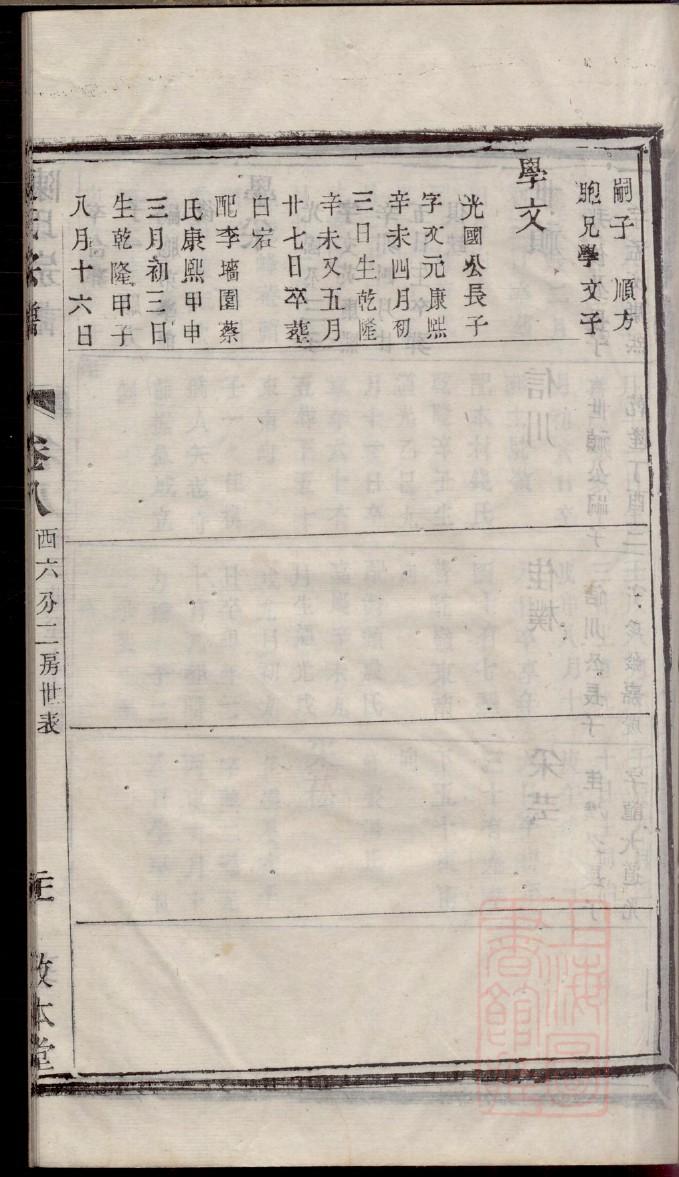 嗣子　順方
胞兄學文子
學文
光國公長子
字文元康熙
辛未四月初
三日生乾隆
辛未又五月
廿七日卒葬
白宕
配李墻園蔡
氏康熙甲申
三月初三日
生乾隆甲子
八月十六日
氏宗譜
卷八
西六分二房世表
敦本堂
上海圖書館藏